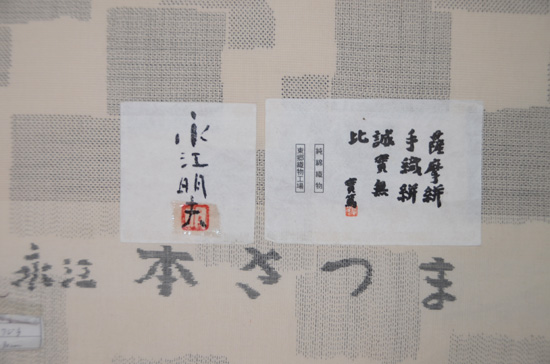 薩摩絣
手織絣
誠實無
比
實篤
純綿織物
東郷織物工場
永江明夫
永江 本さつま